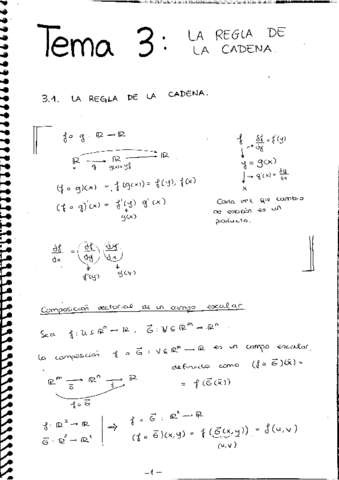 Tema 3: LA REGLA DE
LA CADENA.
3.1. LA REGLA DE LA CADENA.
f∘g: ℝ → ℝ
ℝ →g ℝ → ℝ
x g(x)=y
(f∘g)(x) = f(g(x)) = f(y), f(x)
(f∘g)'(x) = f'(y) g'(x)
g(x)
f df/dy = f'(y)
y = g(x)
g'(x) = dy/dx
x
Cada vez que cambio
de escalón es un
producto.
df/dx = df/dy · dy/dx
f'(y) g'(x)
Composición vectorial de un campo escalar
Sea f: U⊆ℝⁿ → ℝ, G⃗: V⊆ℝᵐ → ℝⁿ
la composición f∘G⃗: V⊆ℝᵐ → ℝ es un campo escalar
definido como (f∘G⃗)(x̄) =
= f(G⃗(x̄))
ℝᵐ →G⃗ ℝⁿ →f ℝ
f∘G⃗
f: ℝ² → ℝ
G⃗: ℝ² → ℝ²
⇒ f∘G⃗: ℝ² → ℝ
(f∘G⃗)(x,y) = f(G⃗(x,y)) = f(u,v)
(u,v)
-1-